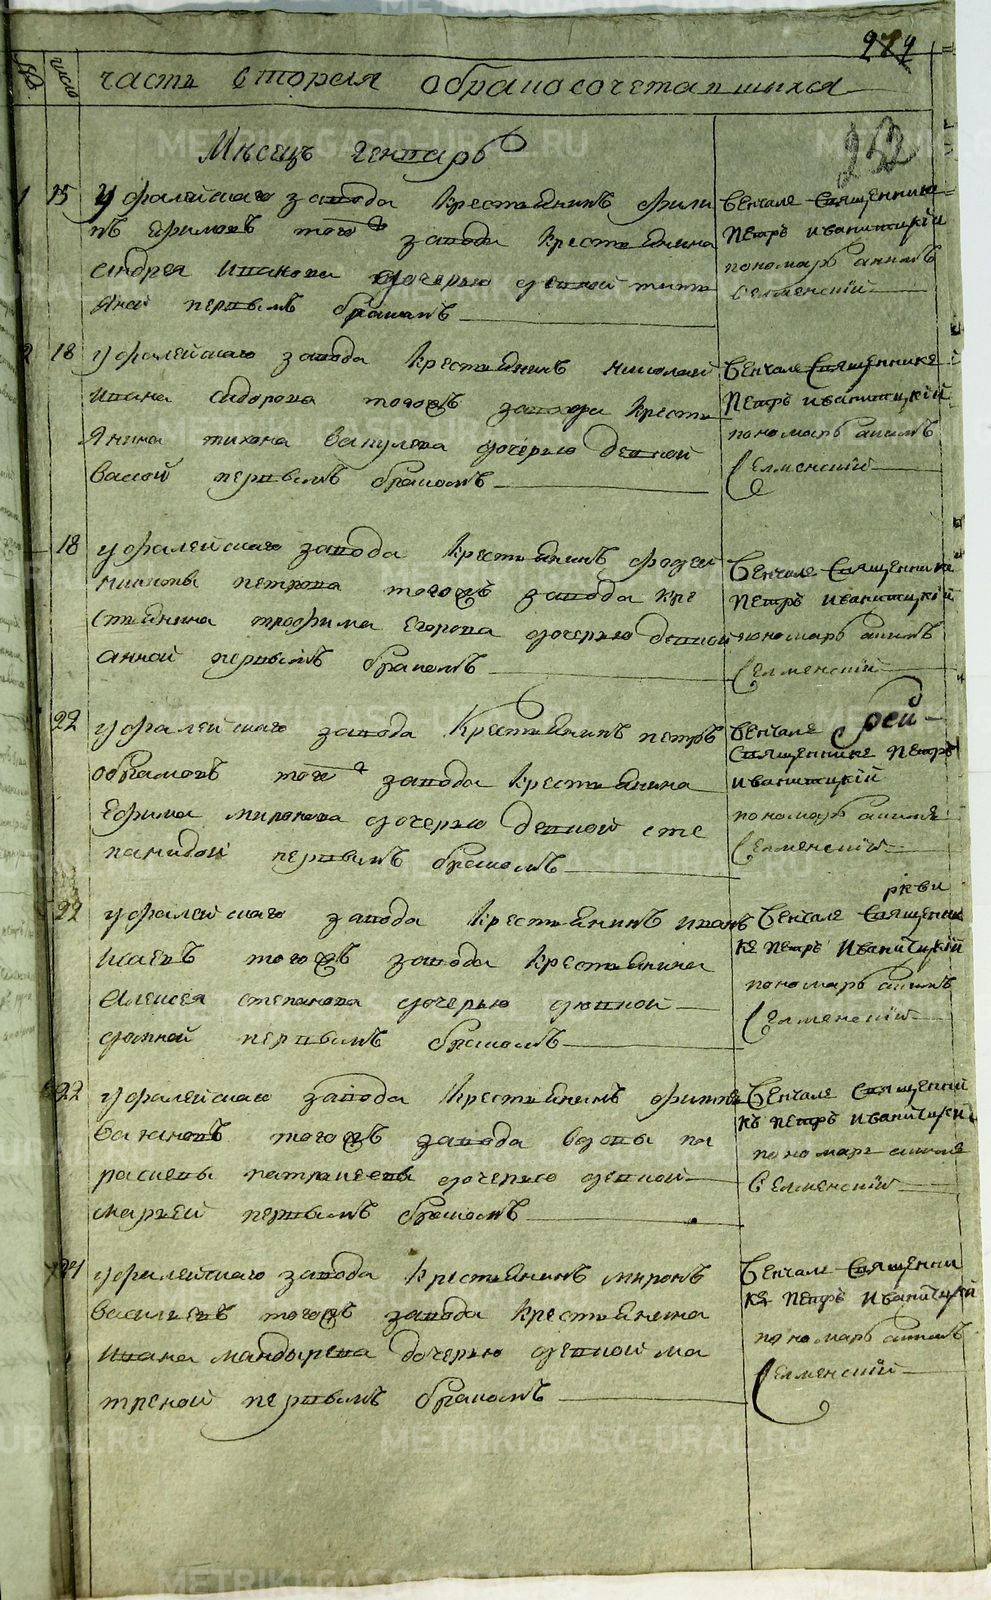 279
232
№
число
часть вторая о бракосочетавшихся
Месяцъ генварь
1 15 Уфалейскаго завода крестьянинъ фили
пъ Ефимовъ того ж завода крестьянина
андрея иванова дочерью девкой татья
яной первымъ бракомъ
венчале священнике
Петръ иваницкій
пономарь акимъ
Селменскій
2 18 уфалейскаго завода крестьянинъ николай
ивана сидорова тогожъ завода кресть
янина тихона вакулова дочерью девкой
васой первымъ бракомъ
венчале священнике
Петръ иваницкій
пономарь акимъ
Селменскій
18 уфалейскаго завода крестьянинъ федей
никиты петрова тогожъ завода кре
стьянина трофима Егорова дочерью девкой
анной первымъ бракомъ
венчале священнике
Петръ иваницкій
пономарь акимъ
Селменскій
22 уфалейскаго завода крестьянинъ петръ
абрамовъ того ж завода крестьянина
Ефима миронова дочерью девкой сте
панидой первымъ бракомъ
венчале рей
священнике Петръ
иваницкій
пономарь акимъ
Селменскій
22 уфалейскаго завода крестьянинъ иванъ
исаевъ тогожъ завода крестьянина
алексея степанова дочерью девкой
домной первымъ бракомъ
ркви
венчале священни
ке Петръ иваницкій
пономарь акимъ
Селменскій
22 уфалейскаго завода крестьянинъ
тогожъ завода вдовы па
дочерью девкой
марьей первымъ бракомъ
венчале священни
къ Петръ иваницкій
пономарь акимъ
Селменскій
уфалейскаго завода крестьянинъ миронъ
васильевъ тогожъ завода крестьянина
ивана мандырева дочерью девкой ма
треной первымъ бракомъ
венчале священни
ке Петръ иваницкій
пономарь акимъ
Селменскій
METRIKI.GASO-URAL.RU